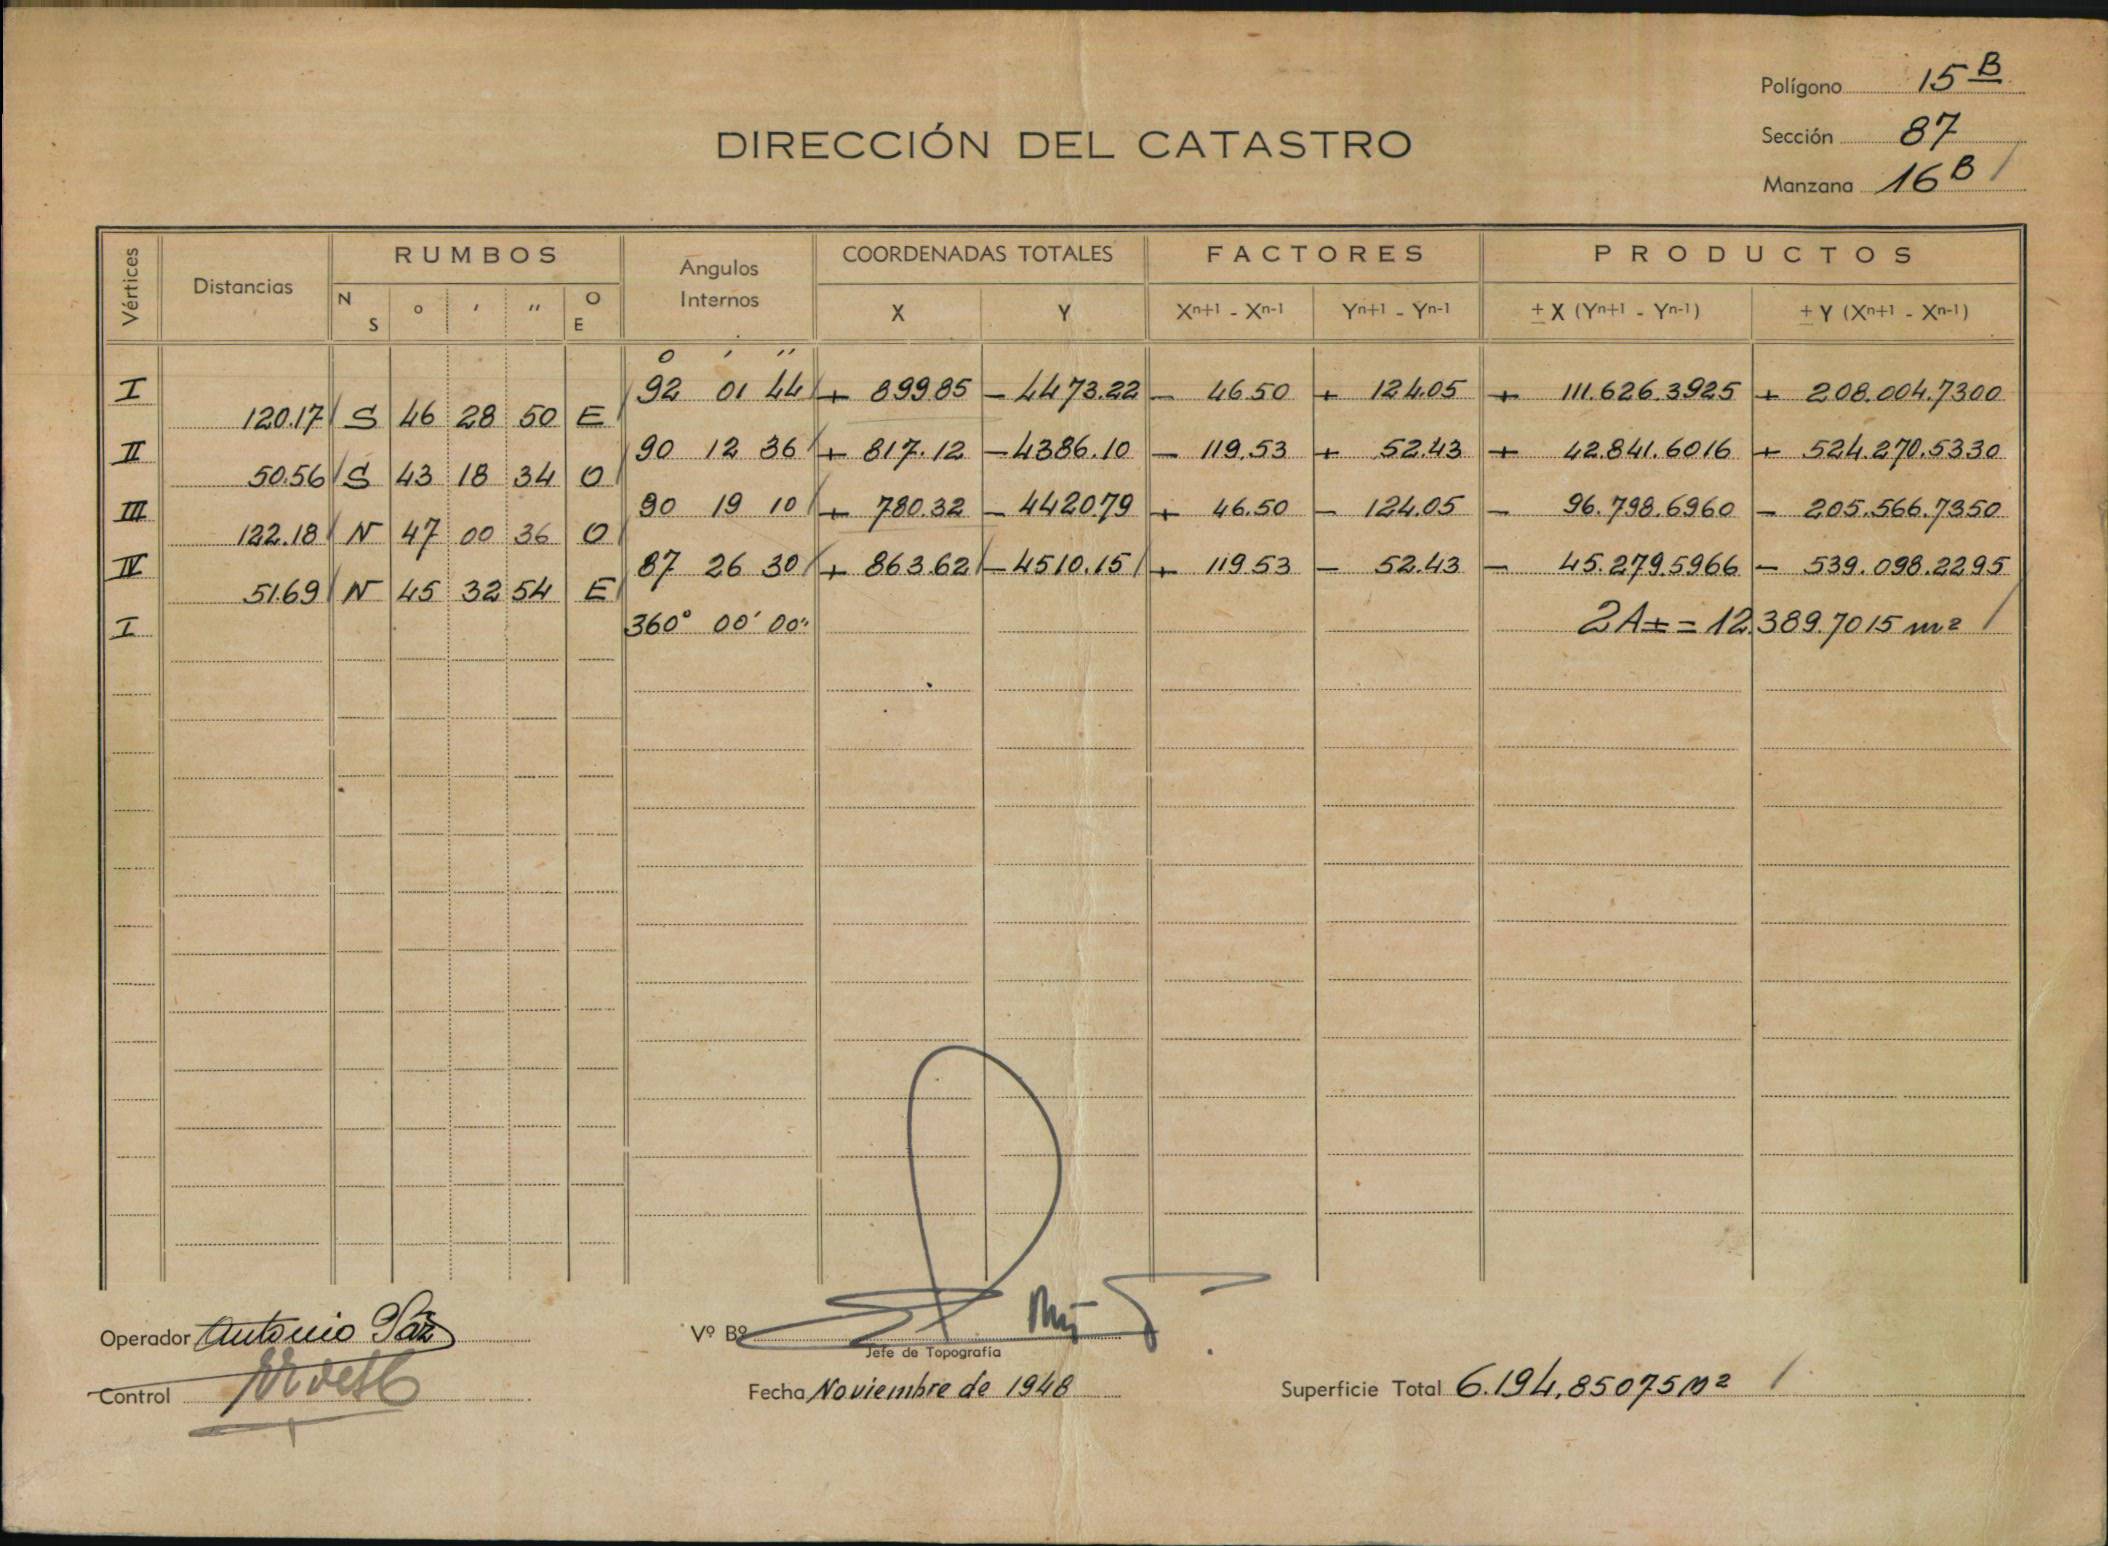 Polígono 15 B
Sección 87
Manzana 16 B
DIRECCIÓN DEL CATASTRO
Vértices Distancias RUMBOS Angulos Internos COORDENADAS TOTALES FACTORES PRODUCTOS
N S o ' " O E X Y Xn+1 - Xn-1 Yn+1 - Yn-1 ± X (Yn+1 - Yn-1) ± Y (Xn+1 - Xn-1)
o ' "
I 92 01 44 + 899.85 - 4473.22 - 46.50 + 124.05 + 111.626.3925 + 208.004.7300
120.17 S 46 28 50 E
II 90 12 36 + 817.12 - 4386.10 - 119.53 + 52.43 + 42.841.6016 + 524.270.5330
50.56 S 43 18 34 O
III 90 19 10 + 780.32 - 4420.79 + 46.50 - 124.05 - 96.798.6960 - 205.566.7350
122.18 N 47 00 36 O
IV 87 26 30 + 863.62 - 4510.15 + 119.53 - 52.43 - 45.279.5966 - 539.098.2295
51.69 N 45 32 54 E
I 360° 00' 00" 2A± = 12.389.7015 m²
Operador Antonio Páz
Vº Bº
Jefe de Topografía
Control
Fecha Noviembre de 1948
Superficie Total 6.194,85075 M²